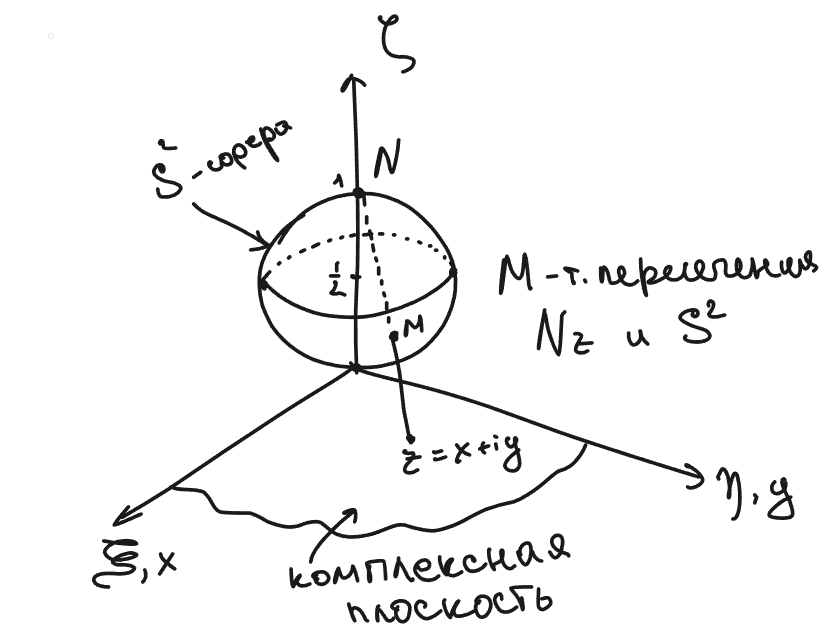 ζ
S² - сфера
N
1
1/2
M - т. пересечения
Nz и S²
M
z = x + iy
η, y
ξ, x
комплексная
плоскость